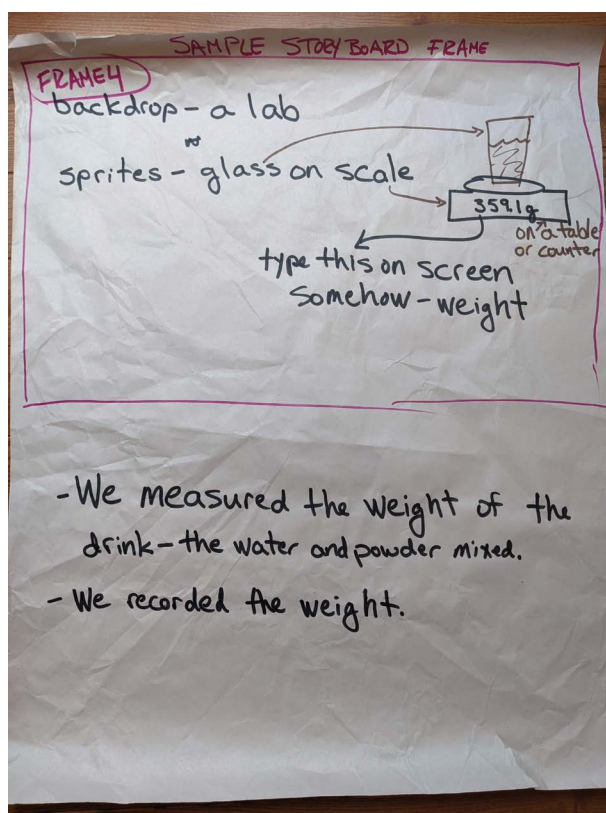 SAMPLE STORYBOARD FRAME
FRAME4
backdrop - a lab
sprites - glass on scale
359.1g
on a table
or counter
type this on screen
somehow - weight
- We measured the weight of the
drink - the water and powder mixed.
- We recorded the weight.